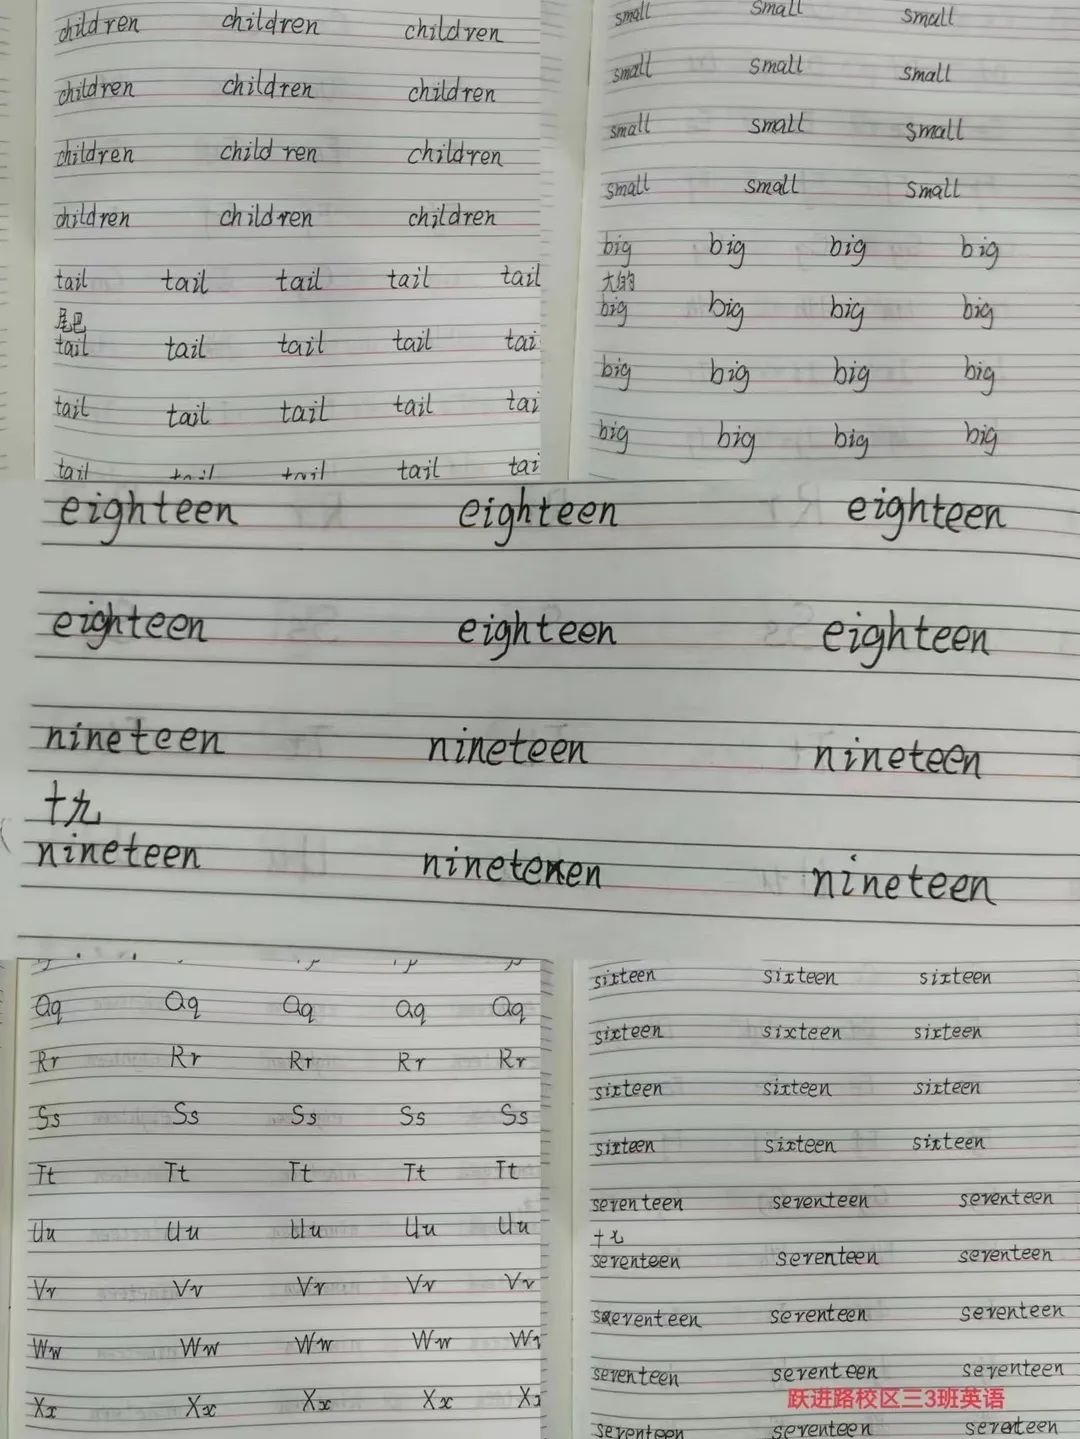 children children children
children children children
children children children
children children children
tail tail tail tail tail
尾巴
tail tail tail tail tai
tail tail tail tail tai
tail tail tail tail tai
small small small
small small small
small small small
small small small
big big big big
大的
big big big big
big big big big
big big big big
eighteen eighteen eighteen
eighteen eighteen eighteen
nineteen nineteen nineteen
十九
nineteen nineteen nineteen
Qq Qq Qq Qq Qq
Rr Rr Rr Rr Rr
Ss Ss Ss Ss Ss
Tt Tt Tt Tt Tt
Uu Uu Uu Uu Uu
Vv Vv Vv Vv Vv
Ww Ww Ww Ww W
Xx Xx Xx Xx X
sixteen sixteen sixteen
sixteen sixteen sixteen
sixteen sixteen sixteen
sixteen sixteen sixteen
seventeen seventeen seventeen
十七
seventeen seventeen seventeen
seventeen seventeen seventeen
seventeen seventeen seventeen
跃进路校区三3班英语
seventeen seventeen seventeen